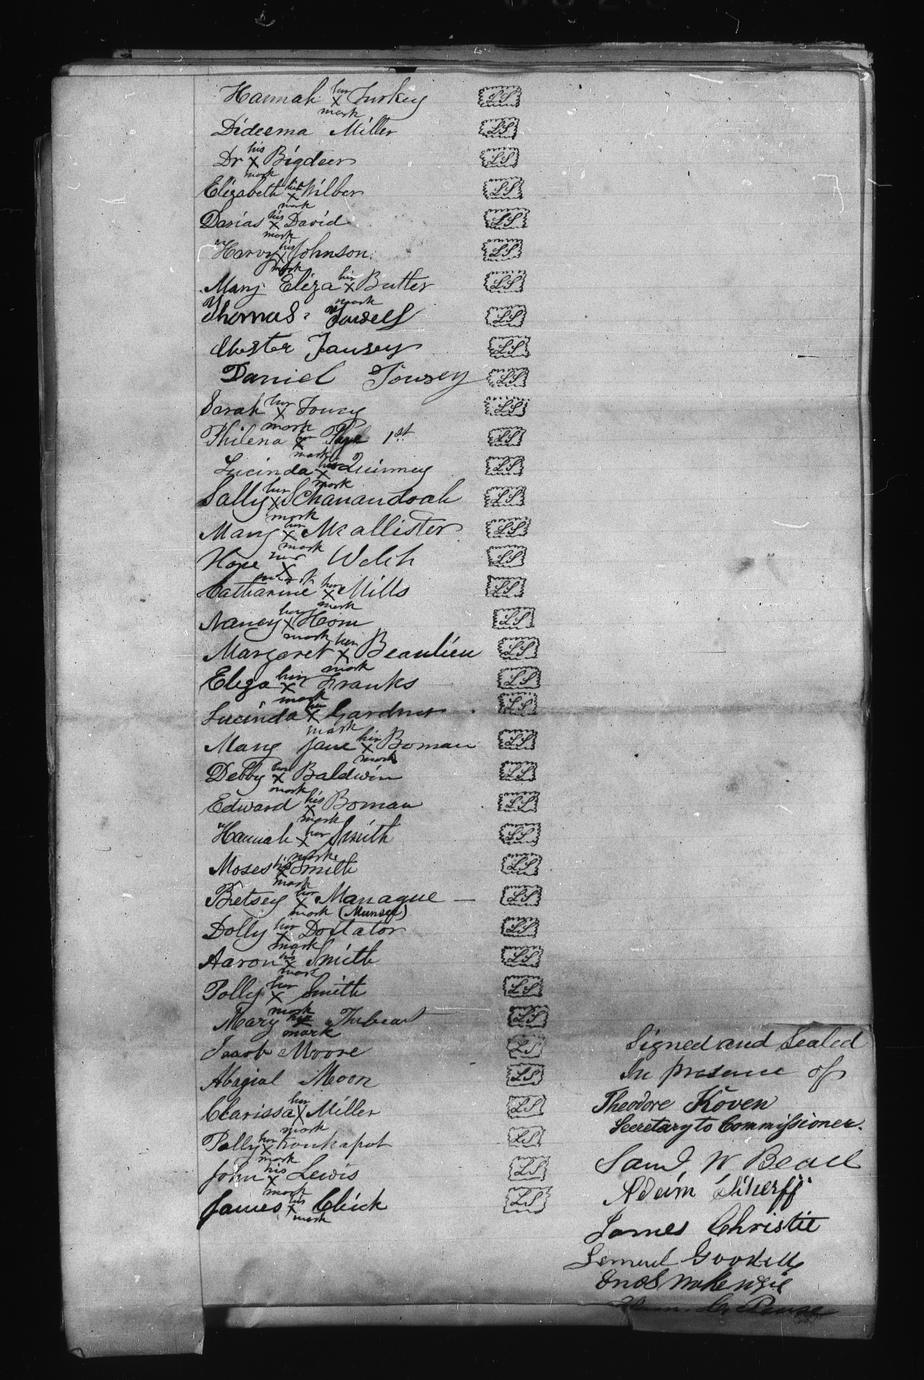 Hannah her x mark Turkey LS
Dideema Miller LS
Dr his x mark Big deer LS
Elizabeth her x mark Wilber LS
Darias his x mark David LS
Harvy his x mark Johnson LS
Mary Eliza her x mark Butler LS
Thomas LS
Chester Tousey LS
Daniel Tousey LS
Sarah her x mark Toucy LS
Philena her x mark Pye 1st LS
Lucinda her x mark Quinney LS
Sally her x mark Schanandoah LS
Mary her x mark McAllister LS
Hope her x mark Welch LS
Catharine her x mark Mills LS
Nancy her x mark Hom LS
Margaret her x mark Beaulieu LS
Eliza her x mark Franks LS
Lucinda her x mark Gardner LS
Mary Jane her x mark Boman LS
Debby her x mark Baldwin LS
Edward his x mark Boman LS
Hannah her x mark Smith LS
Moses his x mark Smith LS
Betsey her x mark Manague — LS
(Munsee)
Dolly her x mark Doxtator LS
Aaron his x mark Smith LS
Polly her x mark Smith LS
Mary her x mark LS
Jacob Moore LS
Abagial Moon LS
Clarissa her x mark Miller LS
Polly her x mark Konkapot LS
John his x mark Lewis LS
James his x mark Chick LS
Signed and Sealed
In presence of
Theodore Koven
Secretary to Commissioner.
Saml W Beall
Adam Scherff
James Christie
Lemuel Goodell
Enos McKenzie